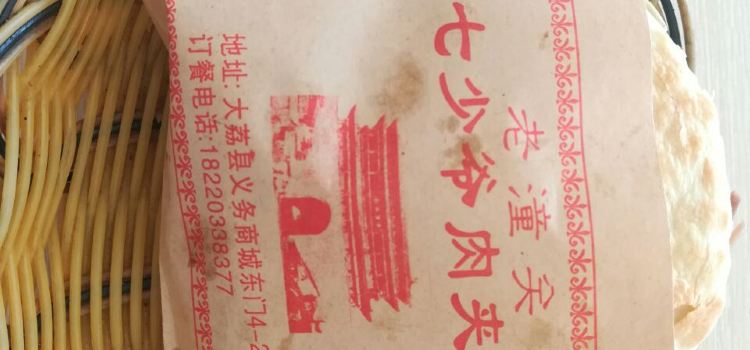 老潼关
七少爷肉夹
地址:大荔县义务商城东门4-2
订餐电话:18220338377